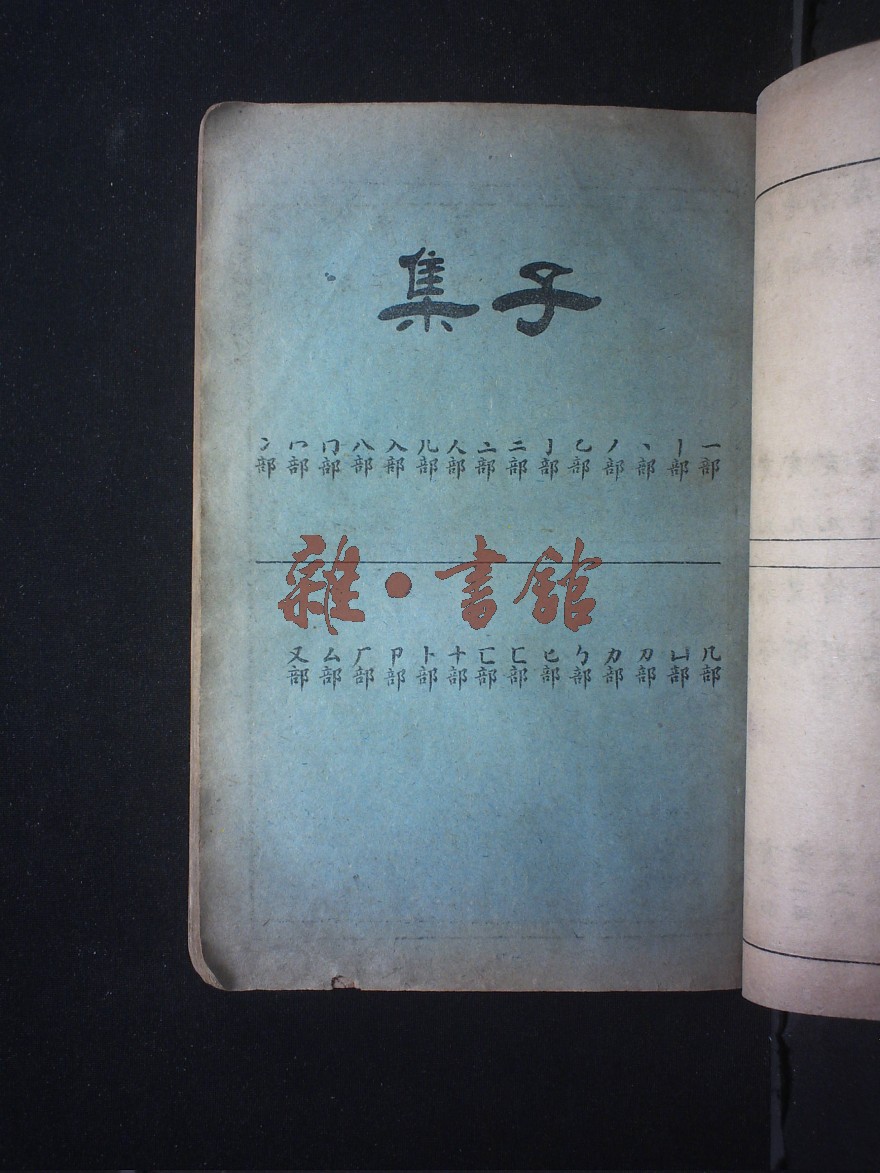 子集
一部 丨部 丶部 丿部 乙部 亅部 二部 亠部 人部 儿部 入部 八部 冂部 冖部 冫部
雜·書館
几部 凵部 刀部 力部 勹部 匕部 匚部 匸部 十部 卜部 卩部 厂部 厶部 又部